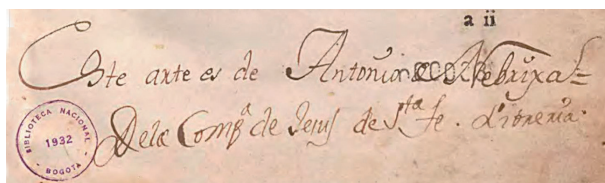 a ii
Este arte es de Antonio de Nebrixa
Dela Comp.ª de Jesus de S.ta fe. Libreria.
BIBLIOTECA NACIONAL
1932
- BOGOTA -